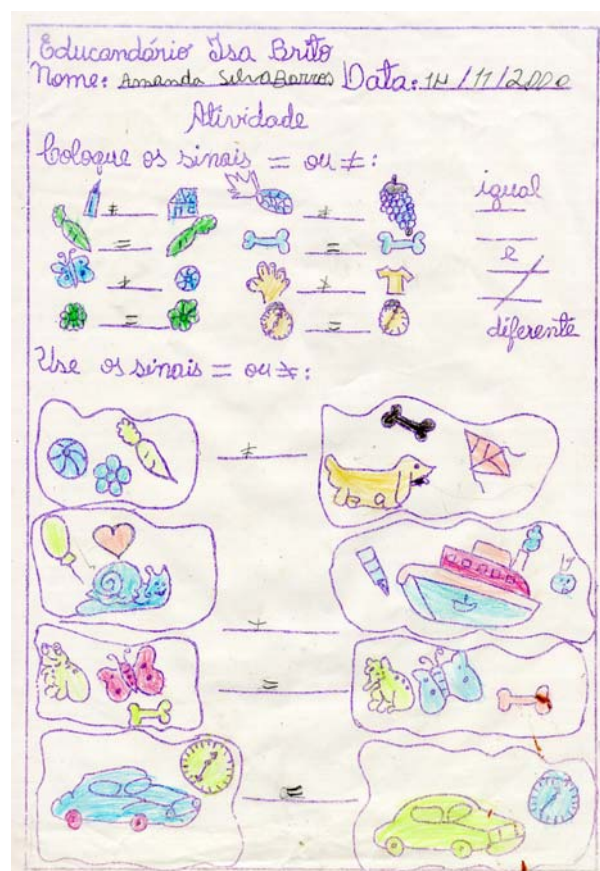 Educandário Isa Brito
Nome: Amanda Silva Barros Data: 14/11/2000
Atividade
Coloque os sinais = ou ≠:
≠ ≠ igual
= =
≠ ≠ e
= = diferente
Use os sinais = ou ≠:
≠
≠
=
=